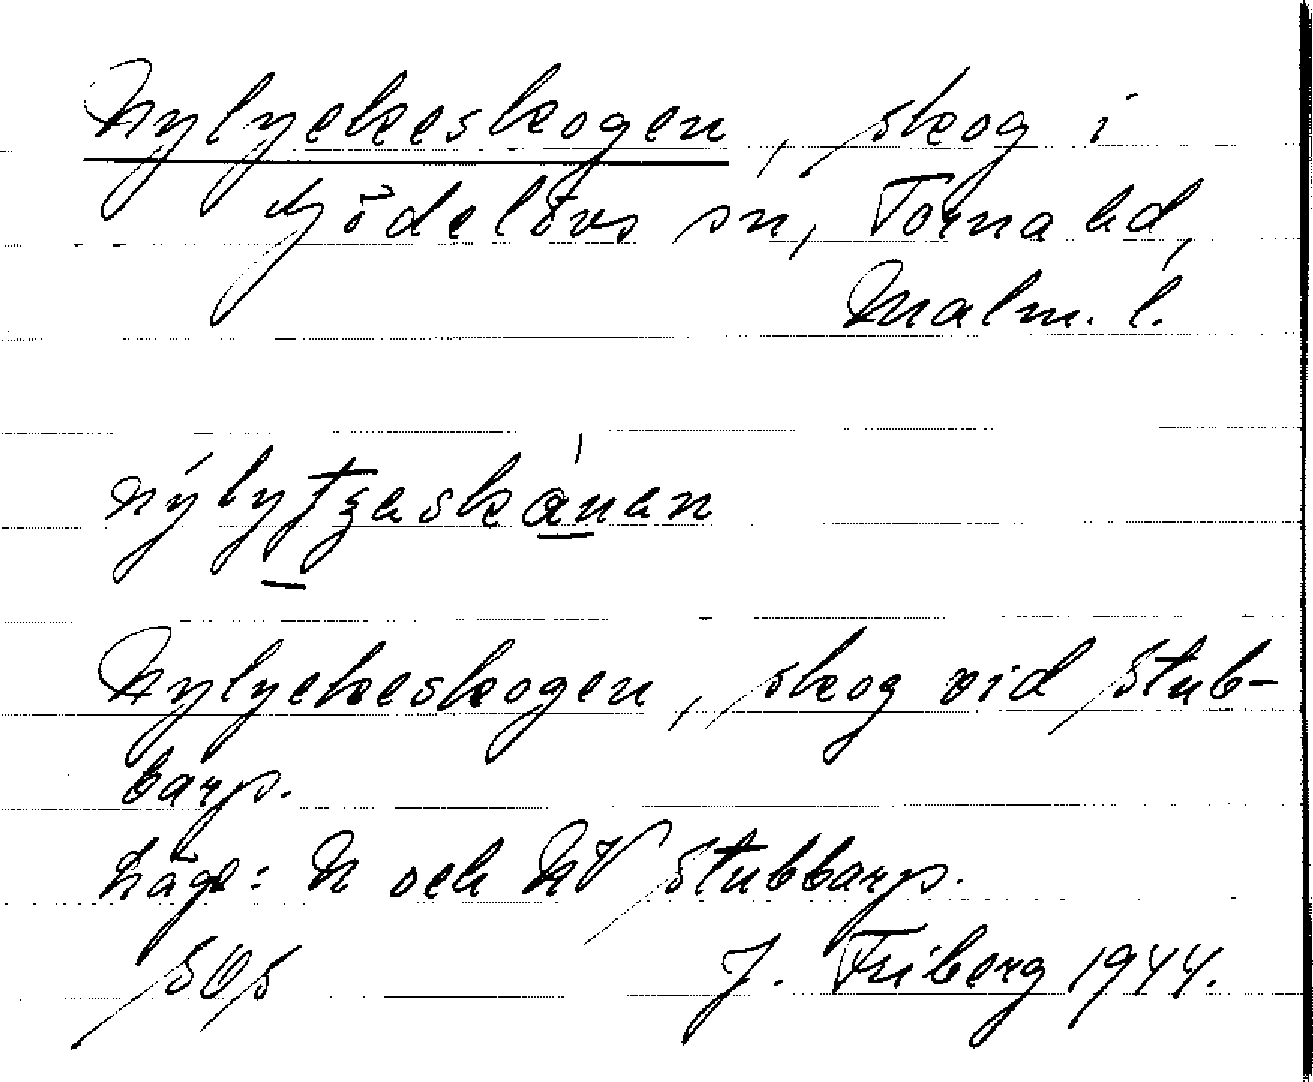 Nylyckeskogen, skog i
Hjödelövs sn, Torna hd,
Malm. l.
Nylyckeskogen, skog vid Stub-
barp.
Läge: N och NV Stubbarp.
SOS J. Friberg 1944.